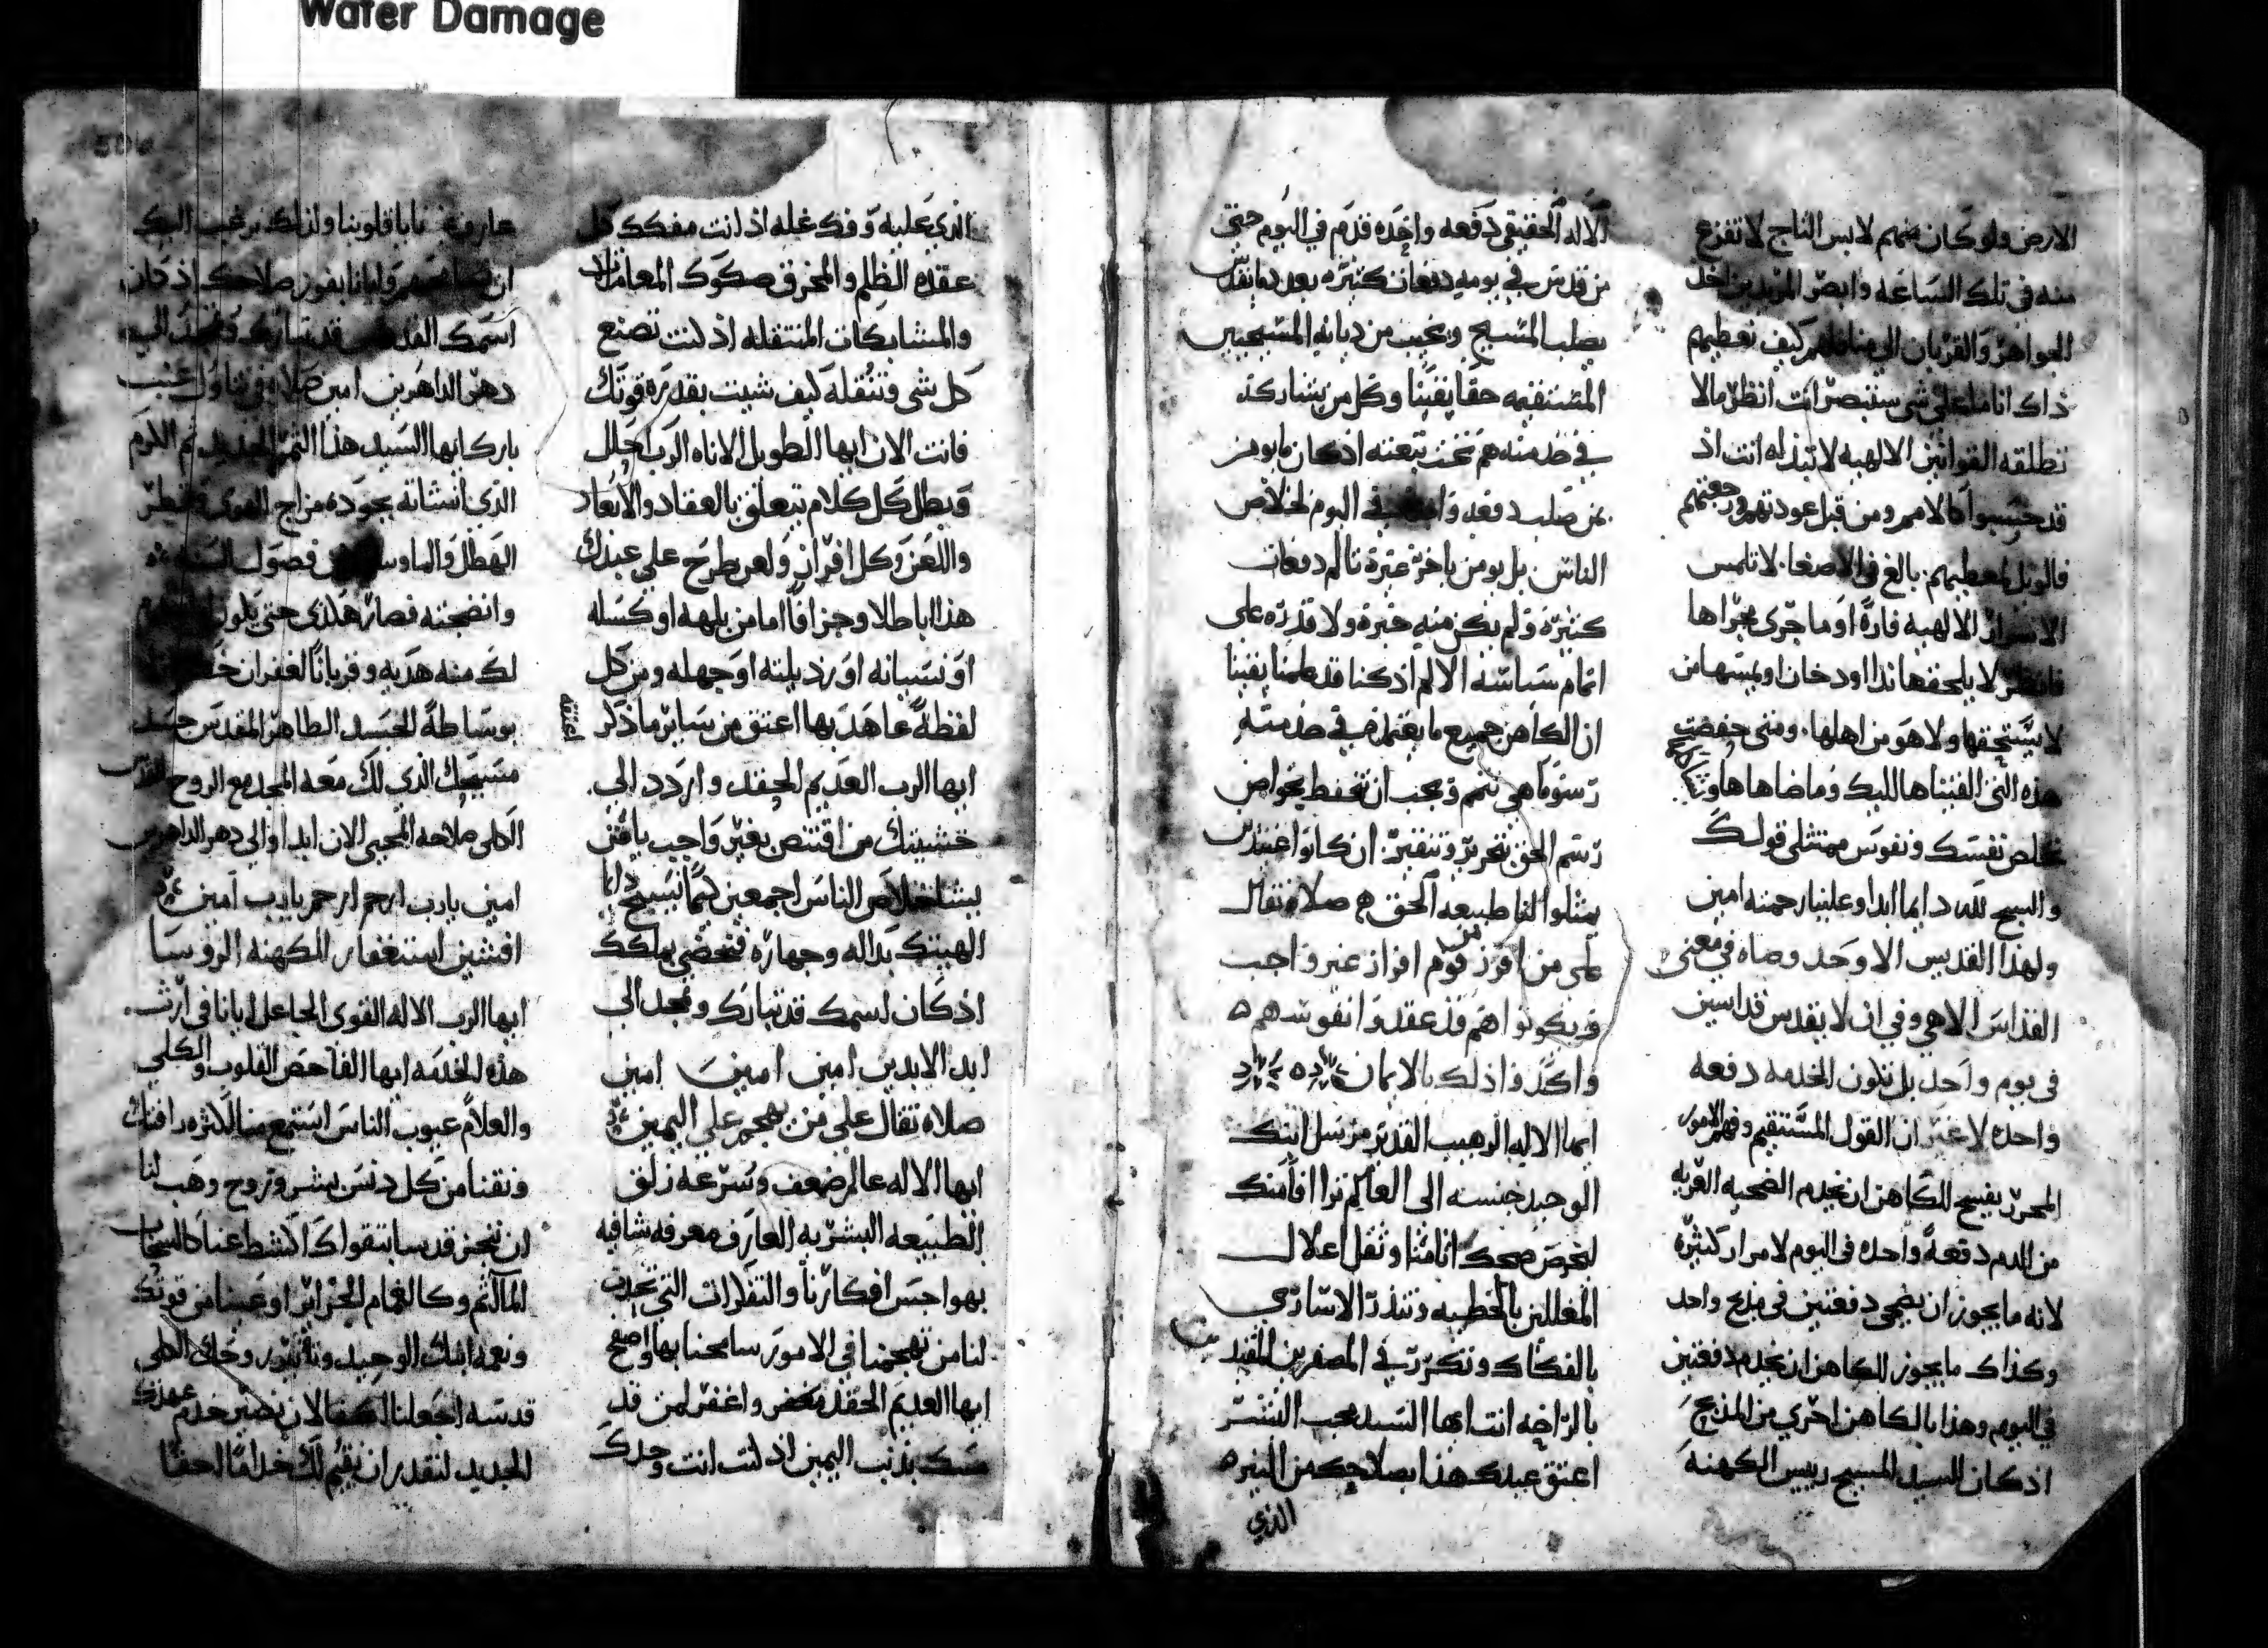 Water Damage
الارض ولو كان منهم لابس التاج لا تفزع
منه في تلك الساعه وابصر المريدين اخذ
الجواهر والقربان الي منازلهم كيف تعطيهم
ذاك اناما علي شي ستبصر انت انظر ما لا
تطلقه القوانين الالهيه لا تبذله انت اذ
قد حسبوا كالامم ومن قبل عودتهم ورجعتهم
فالويل لمعطيهم بالغ في الاصغا لا تلمس
الاسرار الالهيه فارة او ما جري مجراها
فانظر لا يلحقها ندا او دخان او يمسها من
لا يستحقها ولا هو من اهلها ومتي حفضت
هذه التي القيناها اليك وما ضاهاها وشاكلها
تخلص نفسك ونفوس ممتثلي قولك
والسبح لله دايما ابدا وعلينا رحمته امين
ولهذا القديس الاوحد وصاه في معني
القداس الالاهي وفي ان لا يقدس قداسين
في يوم واحد بل تكون الخدمه دفعه
واحده لا غير ان القول المستقيم وفهم الامور
المحرر يفسح للكاهن ان يخدم الضحيه العريه
من الدم دفعةً واحده في اليوم لا مرار كثيرة
لانه ما يجوز ان يضحي دفعتين في مذبح واحد
وكذاك ما يجوز للكاهن ان يخدم دفعتين
في اليوم وهذا بالكاهن احري من المذبح
اذ كان السيد المسيح رييس الكهنة
الآلاه الحقيقي دفعه واحده قدم في اليوم حتي
من قدس في يومه دفعات كثيره يعود ما يقدس
يصلب المسيح ويخيب من ديانه المسيحيين
المستقيمه حقا يقينا وكل من يشاركه
في خدمته هم تحت تبعته اذ كان ما يومن
بمن صلب دفعه في اليوم لخلاص
الناس بل يومن باخر غيرة تالم دفعات
كثيرة ولم يكن منه خبرة ولا قدره علي
اتمام سياسه الالم اذ كنا قد علمنا يقينا
ان الكاهن جميع ما يعتمد في خدمته
رسوما هي تتم ويجب ان تحفظ بخواص
رسم الحق بتحرير وتنقير ان كانوا اعتيدين
يمثلوا لنا طبيعه الحق صلاة تقال
علي من افرز من قوم افراز غير واجب
ويكونوا هم قد عقدوا نفوسهم
واكدوا ذلك بالايمان
ايها الالاه الوهيب القدير مرسل ابنك
الوحيد جنسه الي العالم ترافا منك
لتخرص صحك اثامنا وثقل اعلال
المغللين بالخطيه وتنذر الاساري
بالفكاك وتكرز في المصغرين المقيدين
بالراحه انت ايها السيد محب البشر
اعتق عبدك هذا بصلاحك من النير
الذي
الذي عليه وفك غله اذ انت مفكك كل
عقده الظلم والمخرق صكوك المعاملات
والمشابكات المنتقله اذ كنت تصنع
كل شي وتنقله كيف شيت بقدره قوتك
فانت الان ايها الطويل الاناه الرب احلل
وبطل كل كلام يتعلق بالعقاد والابعاد
واللعن وكل افران ولعن يطرح علي عبدك
هذا باطلا وجزافا اما من بلهه او كسله
او نسيانه او رذيلته او جهله ومن كل
لفظة عاهد بها اعتق من ساير ما ذكر
ايها الرب العديم الحقد واردد الي
خشيتك من اقتنص بغير واجب
لخلاص الناس اجمعين كما نسبح دايما
الهيتك بداله وجهاره فنحضي بملكك
اذ كان اسمك قد تبارك وتمجد الي
ابد الابدين امين امين امين
صلاه تقال علي من يهجم علي اليمين
ايها الالاه عالم ضعف وسرعه زلق
الطبيعه البشريه العارف معرفه شافيه
بهواجس افكارنا والتفكرات التي تحدث
لنا من تهجمنا في الامور سامحنا بها واصفح
ايها العديم الحقد واغفر لمن قد
مسك بذنب اليمين اذ كنت انت وحدك
عارف خبايا قلوبنا ولذلك نرغب اليك
ان ايانا بفوز صلاحك اذ كان
اسمك القدوس قد تبارك وتمجد الي
دهر الداهرين امين صلاه في تناول عنب
بارك ايها السيد هذا الثمر الجديد ثمر الكرم
الذي انشاته بجوده مزاج الهوي وقطر
الهطل والما فصول السنه
وانضجته فصار هكذي حتي يكون
لك منه هديه وقربانا لغفران
بوساطة الجسد الطاهر المقدس جسد
مسيحك الذي لك معه المجد مع الروح القدس
الكلي صلاحه المحيي الان ابدا والي دهر الداهرين
امين يارب ارحم ارحم يارب امين
افشين استغفار للكهنه الروسا
ايها الرب الالاه القوي الجاعل ايانا في ارث
هذه الخدمه ايها الفاحص القلوب والكلي
والعلام عيوب الناس استمع منا لكثره رافتك
ونقنا من كل دنس بشر وروح وهب لنا
ان ننجز قدسا بتقواك اكشط عنا كالسحاب
الماثم وكالغمام الجراير اوعبنا من قوتك
ونعمة ابنك الوحيد وتاييد روحك الكلي
قدسه اجعلنا اكفا لان نصير خدم عهدك
الجديد لنقدر ان نقيم لك خداما احقا